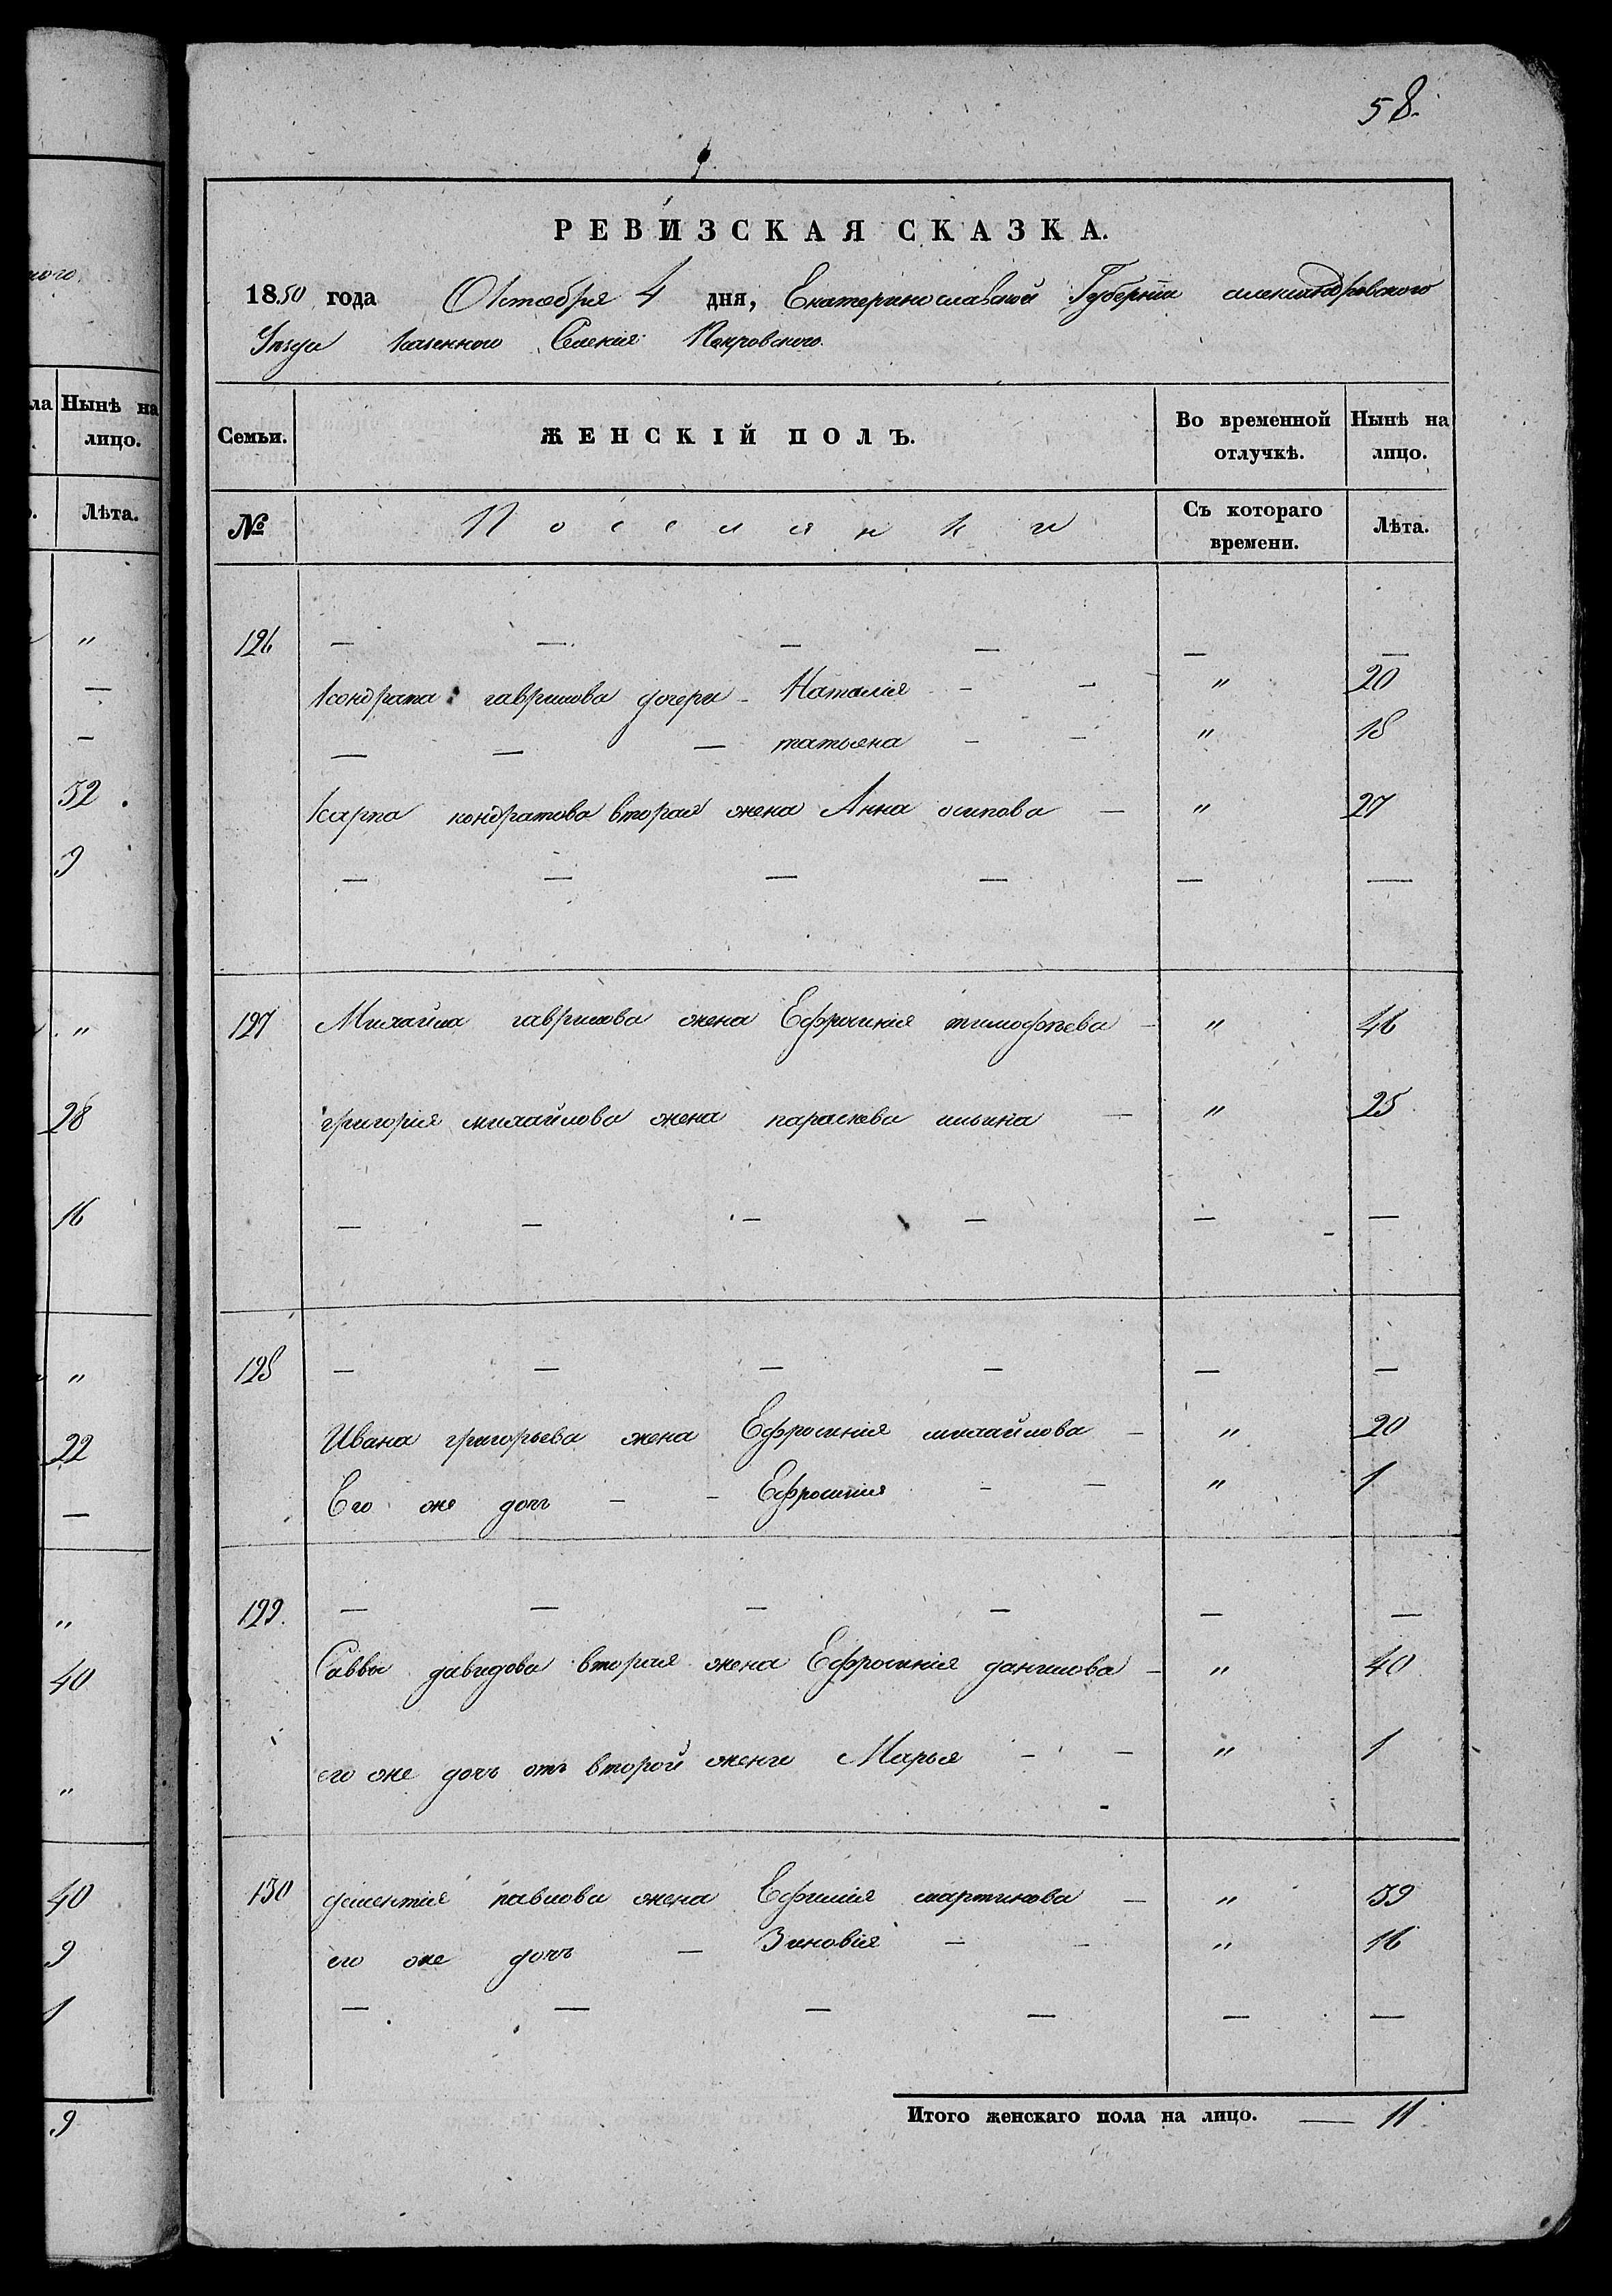 58.
РЕВИЗСКАЯ СКАЗКА.
1850 года Октября 4 дня, Екатеринославской Губерніи александровского
Уезда Казенного Селенія Покровского.
Семьи. ЖЕНСКІЙ ПОЛЪ. Во временной отлучкѣ. Нынѣ на лицо.
№ Поселянки Съ котораго времени. Лѣта.
126 — — — — — —
Кондрата гаврилова дочери - Наталія - - " 20
— — — татьяна - - " 18
Карпа кондратова вторая жена Анна осипова — " 27
— — — — — —
127 Михайла гаврилова жена Ефросинія тимофѣева — " 46
григорія михайлова жена параскева ильина — " 25
— — — — — —
128 — — — — — —
Ивана григорьева жена Ефросинія михайлова — " 20
Его же дочь — - Ефросинія - — " 1
129. — — — — — —
Саввы давидова вторая жена Ефросинія данилова — " 40
его же дочь отъ второй жены Марья - — " 1
130 дементія павлова жена Ефимія мартинова — " 39
его же дочь — Зиновія — - " 16
— — — — — —
Итого женскаго пола на лицо. — 11.
ного
ла Нынѣ на
лицо.
Лѣта.
"
—
—
32
9
"
28
16
"
22
—
"
40
"
40
9
1
9